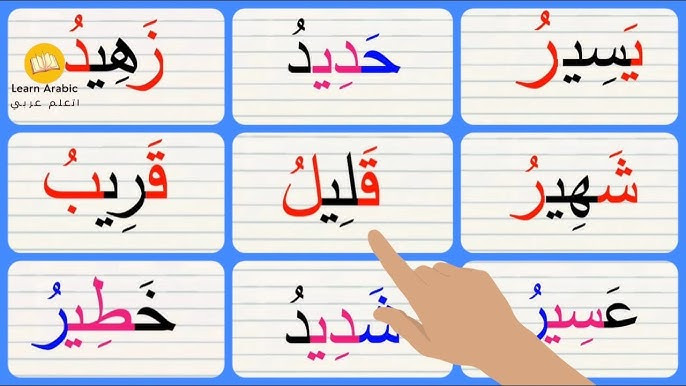 يَسِيرُ
حَدِيدُ
زَهِيدُ
Learn Arabic
اتعلم عربي
شَهِيرُ
قَلِيلُ
قَرِيبُ
عَسِيرُ
شَدِيدُ
خَطِيرُ